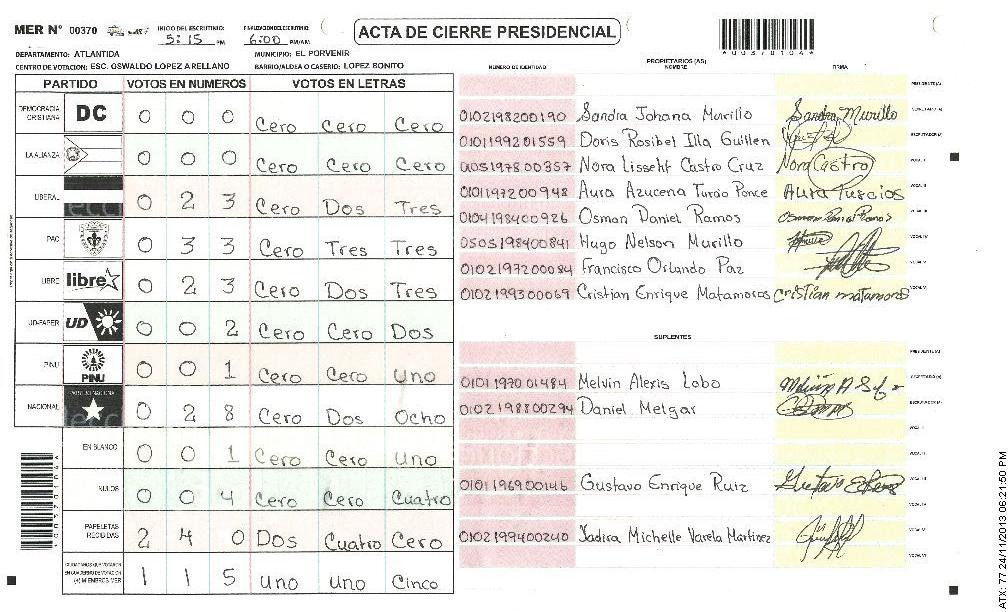 MER N° 00370
INICIO DEL ESCRUTINIO: 5:15 PM
FINALIZACION DEL ESCRUTINIO: 6:00 PM/AM
ACTA DE CIERRE PRESIDENCIAL
DEPARTAMENTO: ATLANTIDA
MUNICIPIO: EL PORVENIR
CENTRO DE VOTACION: ESC. OSWALDO LOPEZ ARELLANO
BARRIO/ALDEA O CASERIO: LOPEZ BONITO
PARTIDO VOTOS EN NUMEROS VOTOS EN LETRAS
DEMOCRACIA CRISTIANA DC 0 0 0 Cero Cero Cero
LA ALIANZA 0 0 0 Cero Cero Cero
LIBERAL 0 2 3 Cero Dos Tres
PAC 0 3 3 Cero Tres Tres
LIBRE libre 0 2 3 Cero Dos Tres
UD-FAPER UD 0 0 2 Cero Cero Dos
PINU PINU 0 0 1 Cero Cero uno
NACIONAL 0 2 8 Cero Dos Ocho
EN BLANCO 0 0 1 Cero Cero uno
NULOS 0 0 4 Cero Cero Cuatro
PAPELETAS RECIBIDAS 2 4 0 Dos Cuatro Cero
CIUDADANOS QUE VOTARON EN CUADERNO DE VOTACION (+) MIEMBROS MER 1 1 5 uno uno Cinco
NUMERO DE IDENTIDAD PROPIETARIOS (AS) NOMBRE FIRMA
PRESIDENTE (A)
0102198200190 Sandra Johana Murillo Sandra Murillo SECRETARIO (A)
0101199201559 Doris Rosibel Illa Guillen ESCRUTADOR (A)
005197800357 Nora Lisseht Castro Cruz Nora Castro VOCAL I
0101197200948 Aura Azucena Turcio Ponce Aura Turcios VOCAL II
0104198400926 Osman Daniel Ramos VOCAL III
0505198400841 Hugo Nelson Murillo VOCAL IV
0102197200084 Francisco Orlando Paz VOCAL V
0102199300069 Cristian Enrique Matamoros Cristian matamoros VOCAL VI
SUPLENTES
PRESIDENTE (A)
0101197001484 Melvin Alexis Lobo SECRETARIO (A)
0102198800294 Daniel Melgar ESCRUTADOR (A)
VOCAL I
VOCAL II
0101196900146 Gustavo Enrique Ruiz VOCAL III
VOCAL IV
0102199400240 Jadira Michelle Varela Martinez VOCAL V
VOCAL VI
ATX: 77 24/11/2013 06:21:50 PM